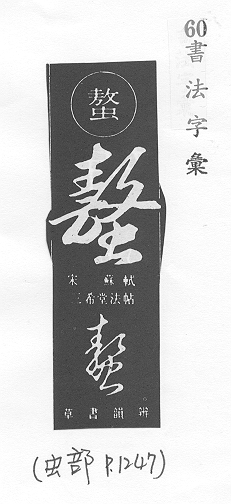 60書法字彙
螯
螯
宋 蘇 軾
三希堂法帖
螯
草書韻辨
(虫部 P.1247)